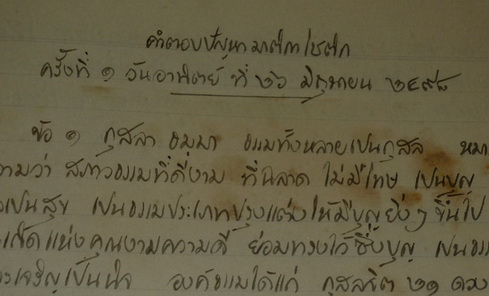 คำตอบปัญหา มาติกาโชติก
ครั้งที่ ๑ วันอาทิตย์ ที่ ๒๖ มิถุนายน ๒๔๙๘
ข้อ ๑ กุสลา ธมฺมา ธรรมทั้งหลายเป็นกุสล หมา
ความว่า สภาวธรรมที่ดีงาม ที่ฉลาด ไม่มีโทษ เป็นบุญ
เป็นสุข เป็นธรรมประเภทปรุงแต่งให้มีบุญยิ่งๆ ขึ้นไป
แห่งคุณงามความดี ย่อมทรงไว้ซึ่งบุญ เป็นธร
เจริญเป็นนิจ องค์ธรรมได้แก่ กุสลจิต ๒๑ ดวง